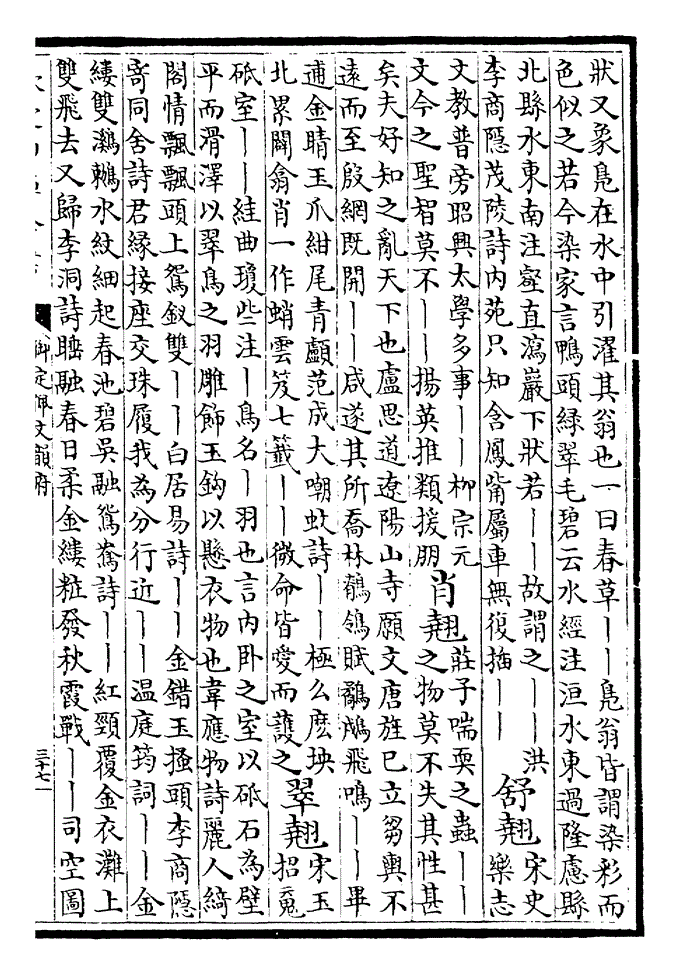 狀又象鳧在水中引濯其翁也一曰春草丨丨鳧翁皆謂染彩而
色似之若今染家言鴨頭綠翠毛碧云水經注洹水東過隆慮縣
北縣水東南注壑直瀉巖下狀若丨丨故謂之丨丨洪
李商隱茂陵詩内苑只知含鳳觜屬車無復揷丨丨
舒翹
宋史
樂志
文教普旁昭興太學多事丨丨柳宗元
文今之聖智莫不丨丨揚英推類援朋
肖翹
莊子喘耎之蟲丨丨
之物莫不失其性甚
矣夫好知之亂天下也盧思道遼陽山寺願文唐旌已立芻輿不
遠而至殷網既開丨丨咸遂其所喬林鶺鴒賦鸛飛鳴丨丨畢
逋金睛玉爪紺尾青顱范成大嘲蚊詩丨丨極么麽坱
北累闢翕肖一作蛸雲笈七籤丨丨微命皆愛而護之
翠翹
宋玉
招䰟
砥室丨丨絓曲瓊些注丨鳥名丨羽也言内卧之室以砥石為壁
平而滑澤以翠鳥之羽雕飾玉鈎以懸衣物也韋應物詩麗人綺
閣情飄飄頭上鴛釵雙丨丨白居易詩丨丨金錯玉搔頭李商隱
寄同舍詩君緣接座交珠履我為分行近丨丨温庭筠詞丨丨金
縷雙鸂鶒水紋細起春池碧吳融鴛鴦詩丨丨紅頸覆金衣灘上
雙飛去又歸李洞詩融春日柔金縷粧發秋霞戰丨丨司空圖
御定佩文韻府